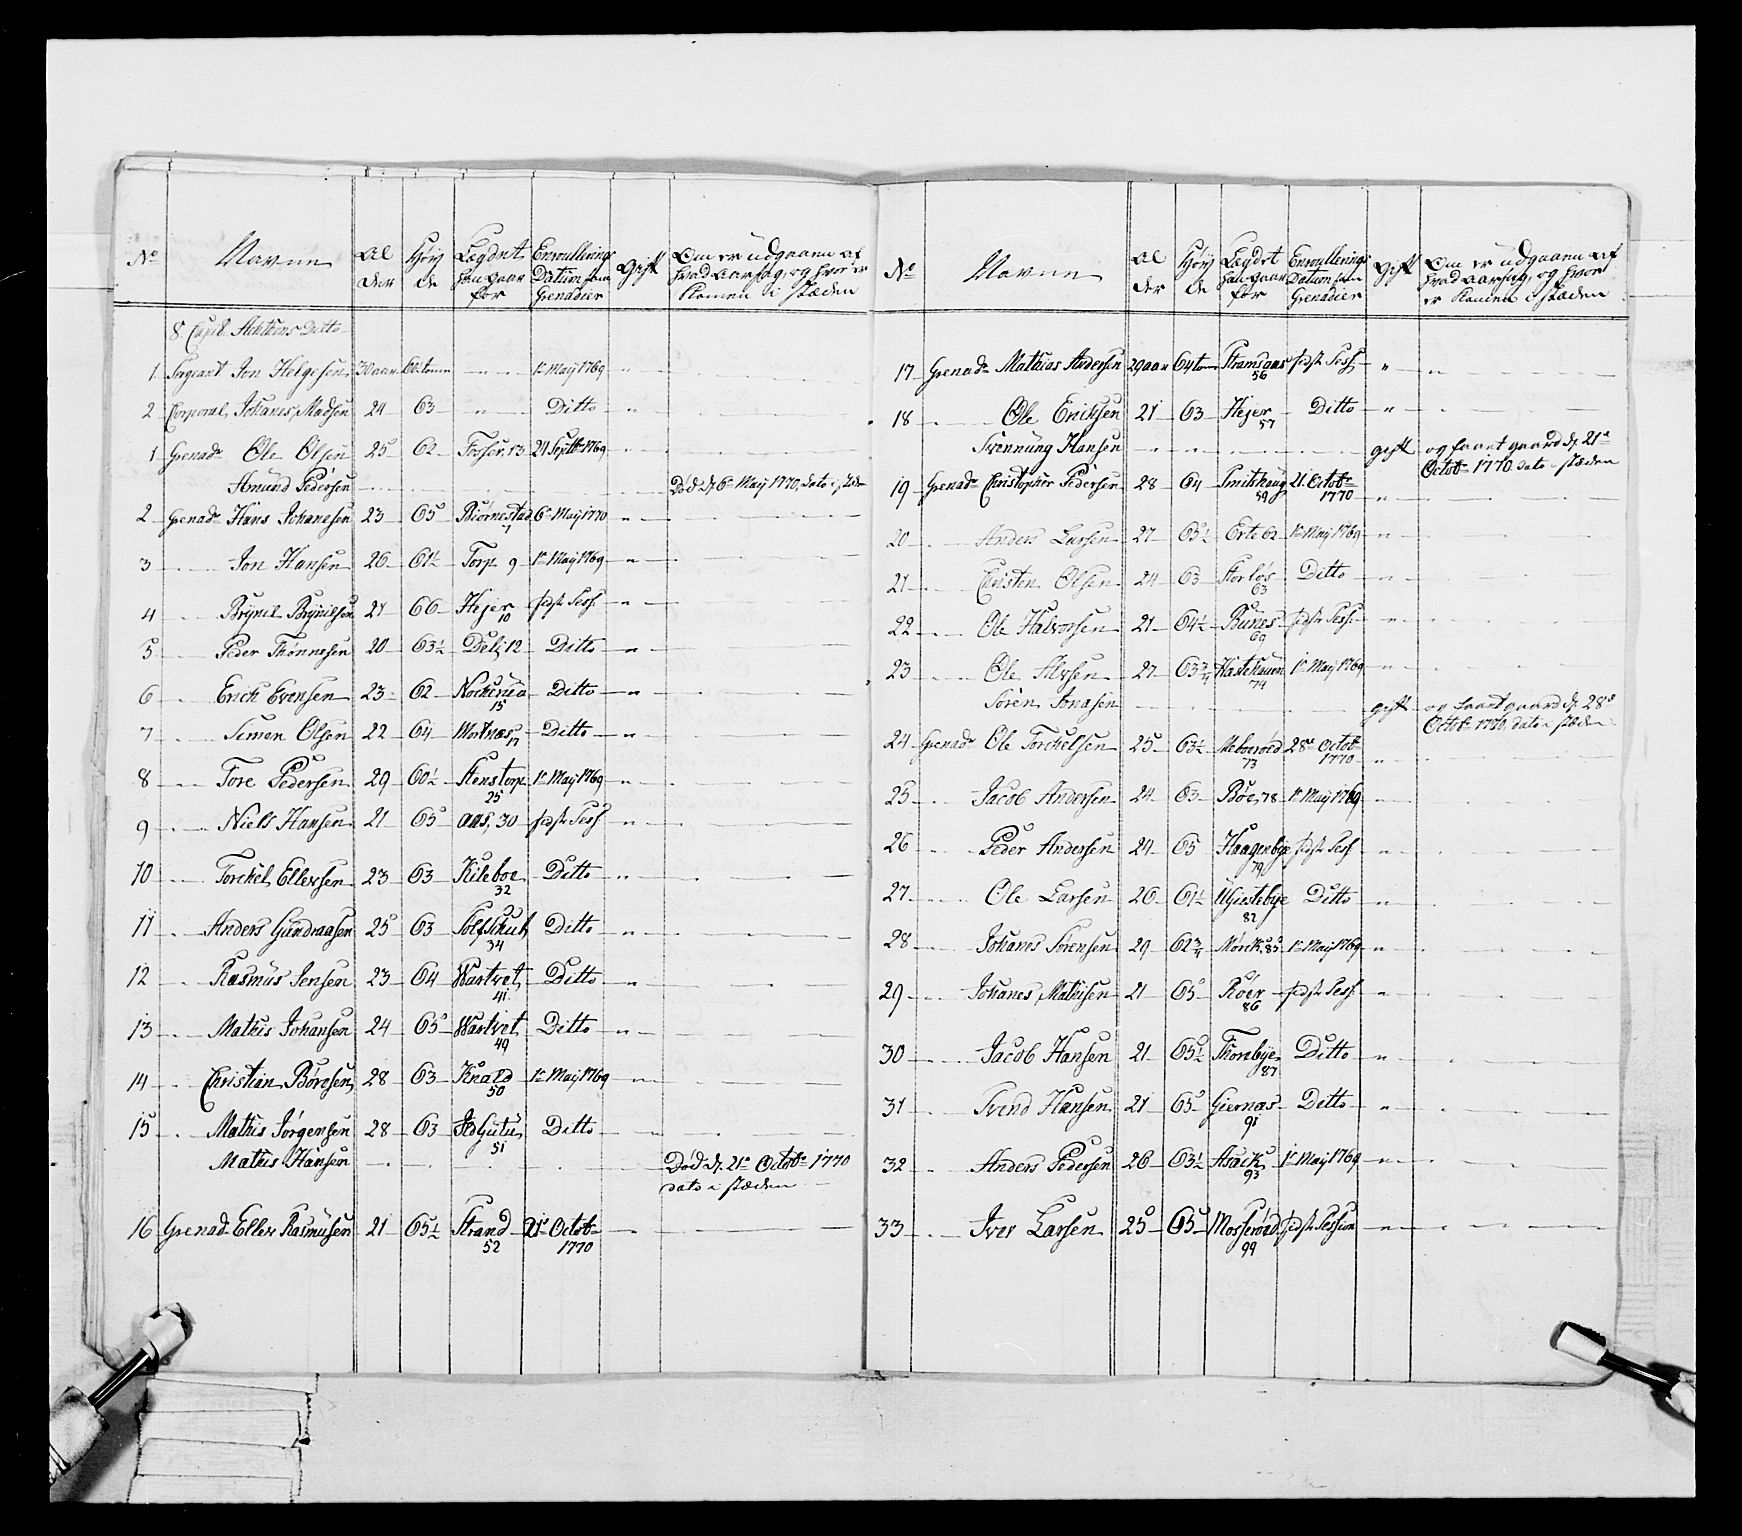 No Navne Al der Høy de Lægdet han staar for Enroullerings Datum som Grenadier Gift Om er udgaaen af hvad Aarsag, og hvor er Komen i stæden
8 Capt. Ditto
1 Sergeant Jon Helgesen 30 aar Tom 1te Maij 1769
2 Corporal Johanes Madsen 24 63 " Ditto "
1 Grenadr Ole Olsen 25 62 Fosser 13 24 Septbr 1769
Amund Pedersen Død d. 6te Maij 1770, dato i stæden
2 Grenadr Hans Johanesen 23 65 Biørnestad 7 6te Maij 1770 "
3 Jon Hansen 26 61½ Torp 9 1te Maij 1769 "
4 Brynil Brynilsen 21 66 Hejer 10 sidste Sess. "
5 Peder Thønnesen 20 63½ Deli 12 Ditto "
6 Erich Evensen 23 62 15 Ditto "
7 Simon Olsen 22 64 Ditto "
8 Tore Pedersen 29 60½ Stenstorp 25 1te Maij 1769 "
9 Niels Hansen 21 65 Aas, 30 sidste Sess "
10 Torchel Ellevsen 23 63 Kileboe 32 Ditto "
11 Anders Gundraasen 25 63 34 Ditto "
12 Rasmus Jensen 23 64 Wartvet 41 Ditto "
13 Mathis Johansen 24 65 Wartvet 49 Ditto "
14 Christian Børesen 28 63 Knald 50 1te Maij 1769
15 Mathis Jørgensen 28 63 51 Ditto
Mathis Hansen Død d. 21de Octobr 1770
dato i stæden
16 Grenad Ellev Rasmusen 21 65½ Strand 52 21de Octobr 1770
No Navne Al der Høy de Lægdet han staar for Enroullerings Datum som Grenadier Gift Om er udgaaen af hvad Aarsag, og hvor er Komen i stæden
17 Grenadr Mathias Andersen 29 aar 64 tom 56 sidste Sess. "
18 Ole Erichsen 21 63 Hejer 57 Ditto "
Svennung Hansen gift og faaet gaard d. 21de
Octobr 1770 dato i stæden
19 Grenadr Christopher Pedersen 28 64 Smithaug 59 21 Octobr 1770 "
20 Anders Larsen 27 65½ Erte 62 1te Maij 1769 "
21 Christen Olsen 24 63 Storløs 63 Ditto "
22 Ole Halvorsen 21 64½ Bunes 69 sidste Sess. "
23 Ole Alvsen 27 63¾ 74 1te Maij 1769 "
Søren Jonasen gift og faaet gaard d. 28de
Octobr 1770, dato i stæden
24 Grenadr Ole Torchelsen 25 63½ 73 28de Octobr 1770 "
25 Jacob Andersen 24 63 Bøe, 78 1te Maij 1769 "
26 Peder Andersen 24 65 Haagenbye 79 sidste Sess "
27 Ole Larsen 26 61½ 82 Ditto "
28 Johanes Sørensen 29 62¾ Mørck, 85 1te Maij 1769 "
29 Johanes Mathisen 21 65 Røer 86 sidste Sess. "
30 Jacob Hansen 21 65½ Thornbye 87 Ditto "
31 Svend Hansen 21 65 Giernæs 91 Ditto "
32 Anders Pedersen 26 63½ Asack 93 1te Maij 1769 "
33 Iver Larsen 25 65 Mosserød 99 sidste Session "